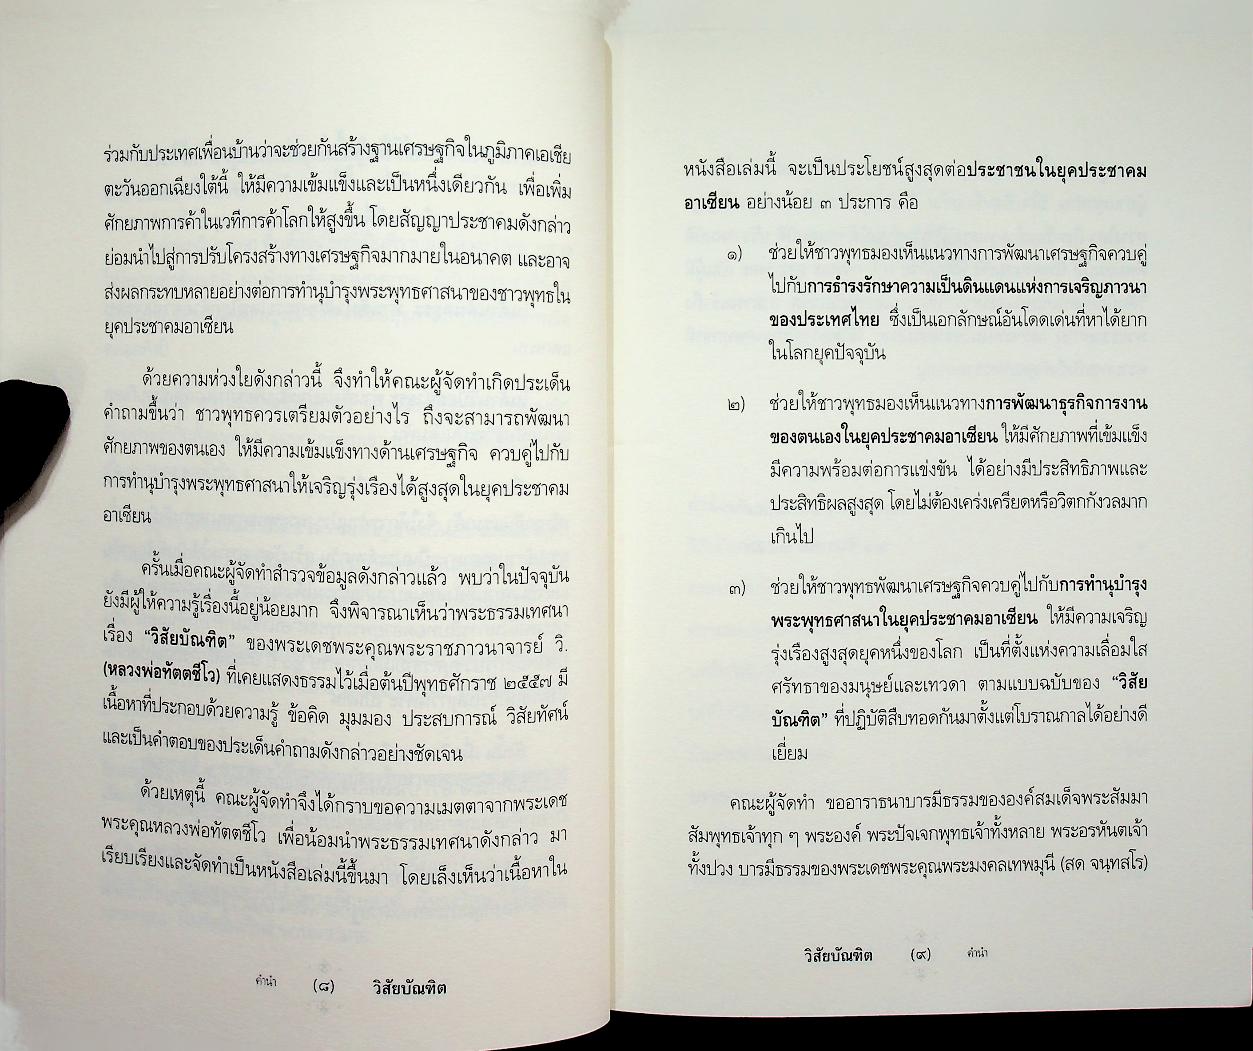 ร่วมกับประเทศเพื่อนบ้านว่าจะช่วยกันสร้างฐานเศรษฐกิจในภูมิภาคเอเชีย
ตะวันออกเฉียงใต้นี้ ให้มีความเข้มแข็งและเป็นหนึ่งเดียวกัน เพื่อเพิ่ม
ศักยภาพการค้าในเวทีการค้าโลกให้สูงขึ้น โดยสัญญาประชาคมดังกล่าว
ย่อมนำไปสู่การปรับโครงสร้างทางเศรษฐกิจมากมายในอนาคต และอาจ
ส่งผลกระทบหลายอย่างต่อการทำนุบำรุงพระพุทธศาสนาของชาวพุทธใน
ยุคประชาคมอาเซียน
ด้วยความห่วงใยดังกล่าวนี้ จึงทำให้คณะผู้จัดทำเกิดประเด็น
คำถามขึ้นว่า ชาวพุทธควรเตรียมตัวอย่างไร ถึงจะสามารถพัฒนา
ศักยภาพของตนเอง ให้มีความเข้มแข็งทางด้านเศรษฐกิจ ควบคู่ไปกับ
การทำนุบำรุงพระพุทธศาสนาให้เจริญรุ่งเรืองได้สูงสุดในยุคประชาคม
อาเซียน
ครั้นเมื่อคณะผู้จัดทำสำรวจข้อมูลดังกล่าวแล้ว พบว่าในปัจจุบัน
ยังมีผู้ให้ความรู้เรื่องนี้อยู่น้อยมาก จึงพิจารณาเห็นว่าพระธรรมเทศนา
เรื่อง “วิสัยบัณฑิต” ของพระเดชพระคุณพระราชภาวนาจารย์ วิ.
(หลวงพ่อทัตตชีโว) ที่เคยแสดงธรรมไว้เมื่อต้นปีพุทธศักราช ๒๕๕๗ มี
เนื้อหาที่ประกอบด้วยความรู้ ข้อคิด มุมมอง ประสบการณ์ วิสัยทัศน์
และเป็นคำตอบของประเด็นคำถามดังกล่าวอย่างชัดเจน
ด้วยเหตุนี้ คณะผู้จัดทำจึงได้กราบขอความเมตตาจากพระเดช
พระคุณหลวงพ่อทัตตชีโว เพื่อน้อมนำพระธรรมเทศนาดังกล่าว มา
เรียบเรียงและจัดทำเป็นหนังสือเล่มนี้ขึ้นมา โดยเล็งเห็นว่าเนื้อหาใน
คำนำ (๘) วิสัยบัณฑิต
หนังสือเล่มนี้ จะเป็นประโยชน์สูงสุดต่อประชาชนในยุคประชาคม
อาเซียน อย่างน้อย ๓ ประการ คือ
๑) ช่วยให้ชาวพุทธมองเห็นแนวทางการพัฒนาเศรษฐกิจควบคู่
ไปกับการธำรงรักษาความเป็นดินแดนแห่งการเจริญภาวนา
ของประเทศไทย ซึ่งเป็นเอกลักษณ์อันโดดเด่นที่หาได้ยาก
ในโลกยุคปัจจุบัน
๒) ช่วยให้ชาวพุทธมองเห็นแนวทางการพัฒนาธุรกิจการงาน
ของตนเองในยุคประชาคมอาเซียน ให้มีศักยภาพที่เข้มแข็ง
มีความพร้อมต่อการแข่งขัน ได้อย่างมีประสิทธิภาพและ
ประสิทธิผลสูงสุด โดยไม่ต้องเคร่งเครียดหรือวิตกกังวลมาก
เกินไป
๓) ช่วยให้ชาวพุทธพัฒนาเศรษฐกิจควบคู่ไปกับการทำนุบำรุง
พระพุทธศาสนาในยุคประชาคมอาเซียน ให้มีความเจริญ
รุ่งเรืองสูงสุดยุคหนึ่งของโลก เป็นที่ตั้งแห่งความเลื่อมใส
ศรัทธาของมนุษย์และเทวดา ตามแบบฉบับของ “วิสัย
บัณฑิต” ที่ปฏิบัติสืบทอดกันมาตั้งแต่โบราณกาลได้อย่างดี
เยี่ยม
คณะผู้จัดทำ ขออาราธนาบารมีธรรมขององค์สมเด็จพระสัมมา
สัมพุทธเจ้าทุก ๆ พระองค์ พระปัจเจกพุทธเจ้าทั้งหลาย พระอรหันตเจ้า
ทั้งปวง บารมีธรรมของพระเดชพระคุณพระมงคลเทพมุนี (สด จนฺทสโร)
วิสัยบัณฑิต (๙) คำนำ